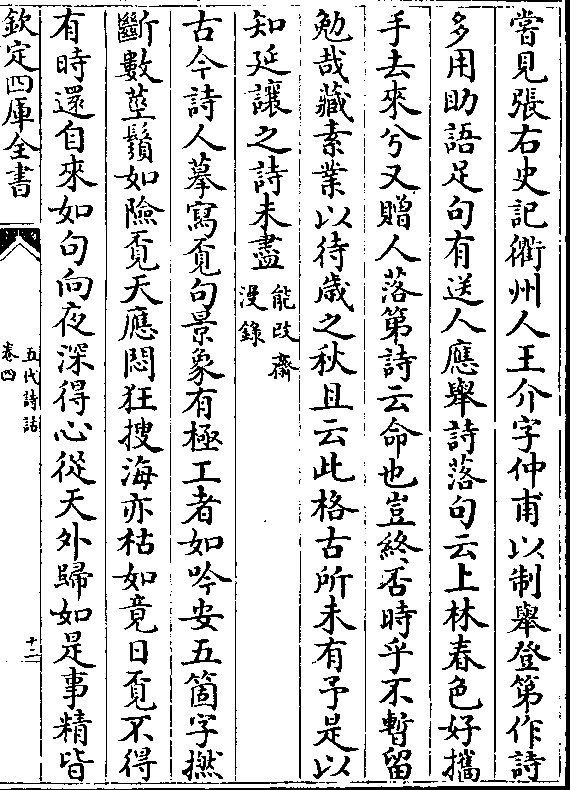 嘗見張右史記衢州人王介字仲甫以制舉登第作詩
多用助語足句有送人應舉詩落句云上林春色好攜
手去來兮又贈人落第詩云命也豈終否時乎不暫留
勉哉藏素業以待歲之秋且云此格古所未有予是以
知延讓之詩未盡能改齋
漫錄
古今詩人摹寫覔句景象有極工者如吟安五箇字撚
斷數莖鬚如險覔天應悶狂搜海亦枯如竟日覔不得
有時還自來如句向夜深得心從天外歸如是事精皆
欽定四庫全書
五代詩話
卷四
十二